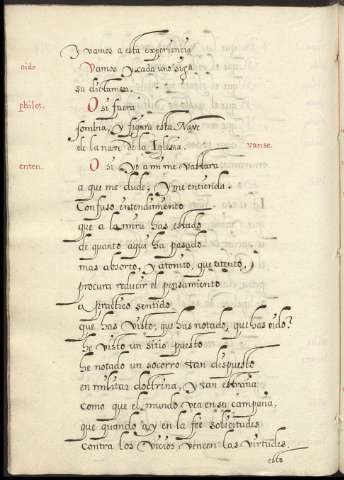 y vamos a esta experiencia
oido Vamos y cada uno siga
su dictamen.
philot. O si fuera
sombra, y figura esta Nave
de la nave de la Iglesia. vanse
enten. O si yo a mi me hablara
a que me dude, y me entienda.
Confuso entendimiento
que a la mira has estado
de quanto aqui ha pasado
mas absorto, y atonito, que atento,
procura reducir el pensamiento
a practico sentido
que has visto, que has notado, que has oido?
he visto un sitio puesto
he notado un socorro tan dispuesto
en militar doctrina, y tan estraña
como que el mundo vea en su campaña,
que quando ay en la fee solicitudes
contra los vicios vencen las virtudes.
esto